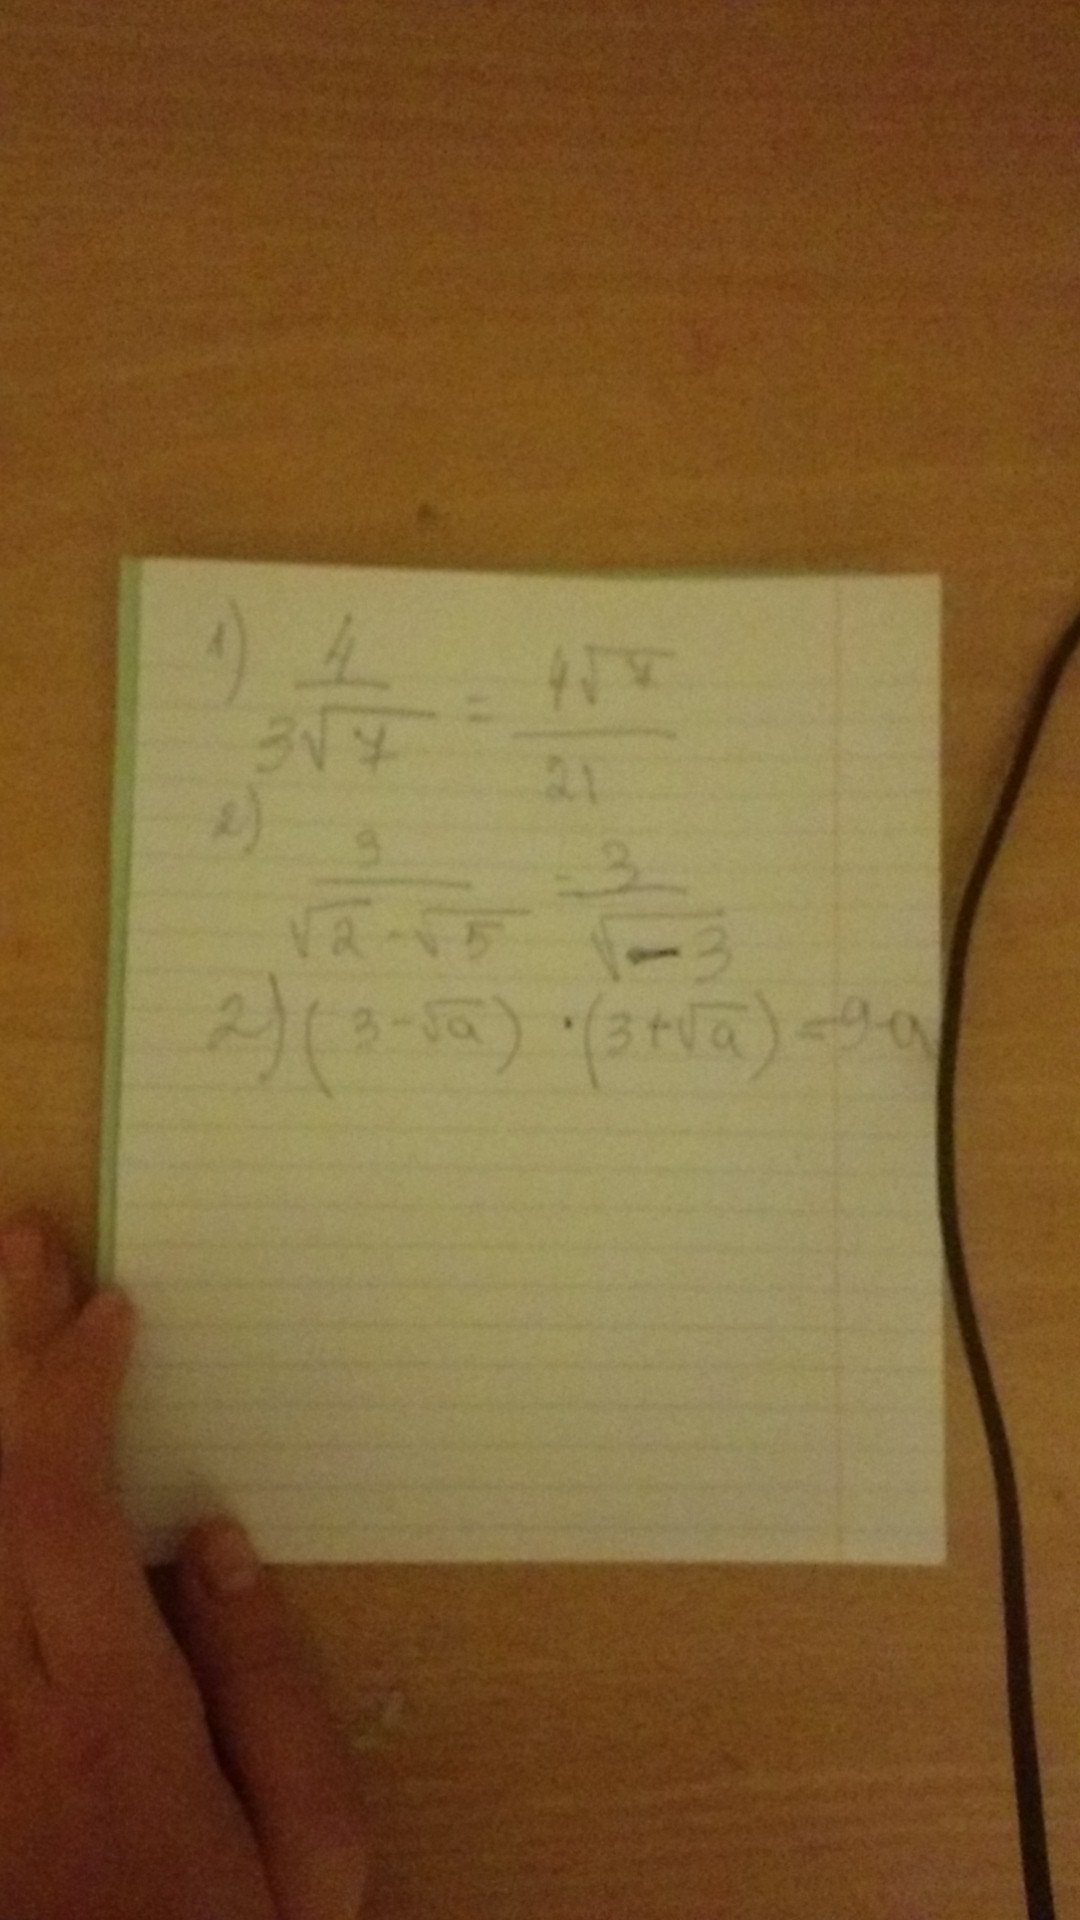 1) 4/(3√7) = 4√7/21
2) 3/(√2 - √5) = 3/√-3
2) (3-√a) · (3+√a) = 9-a